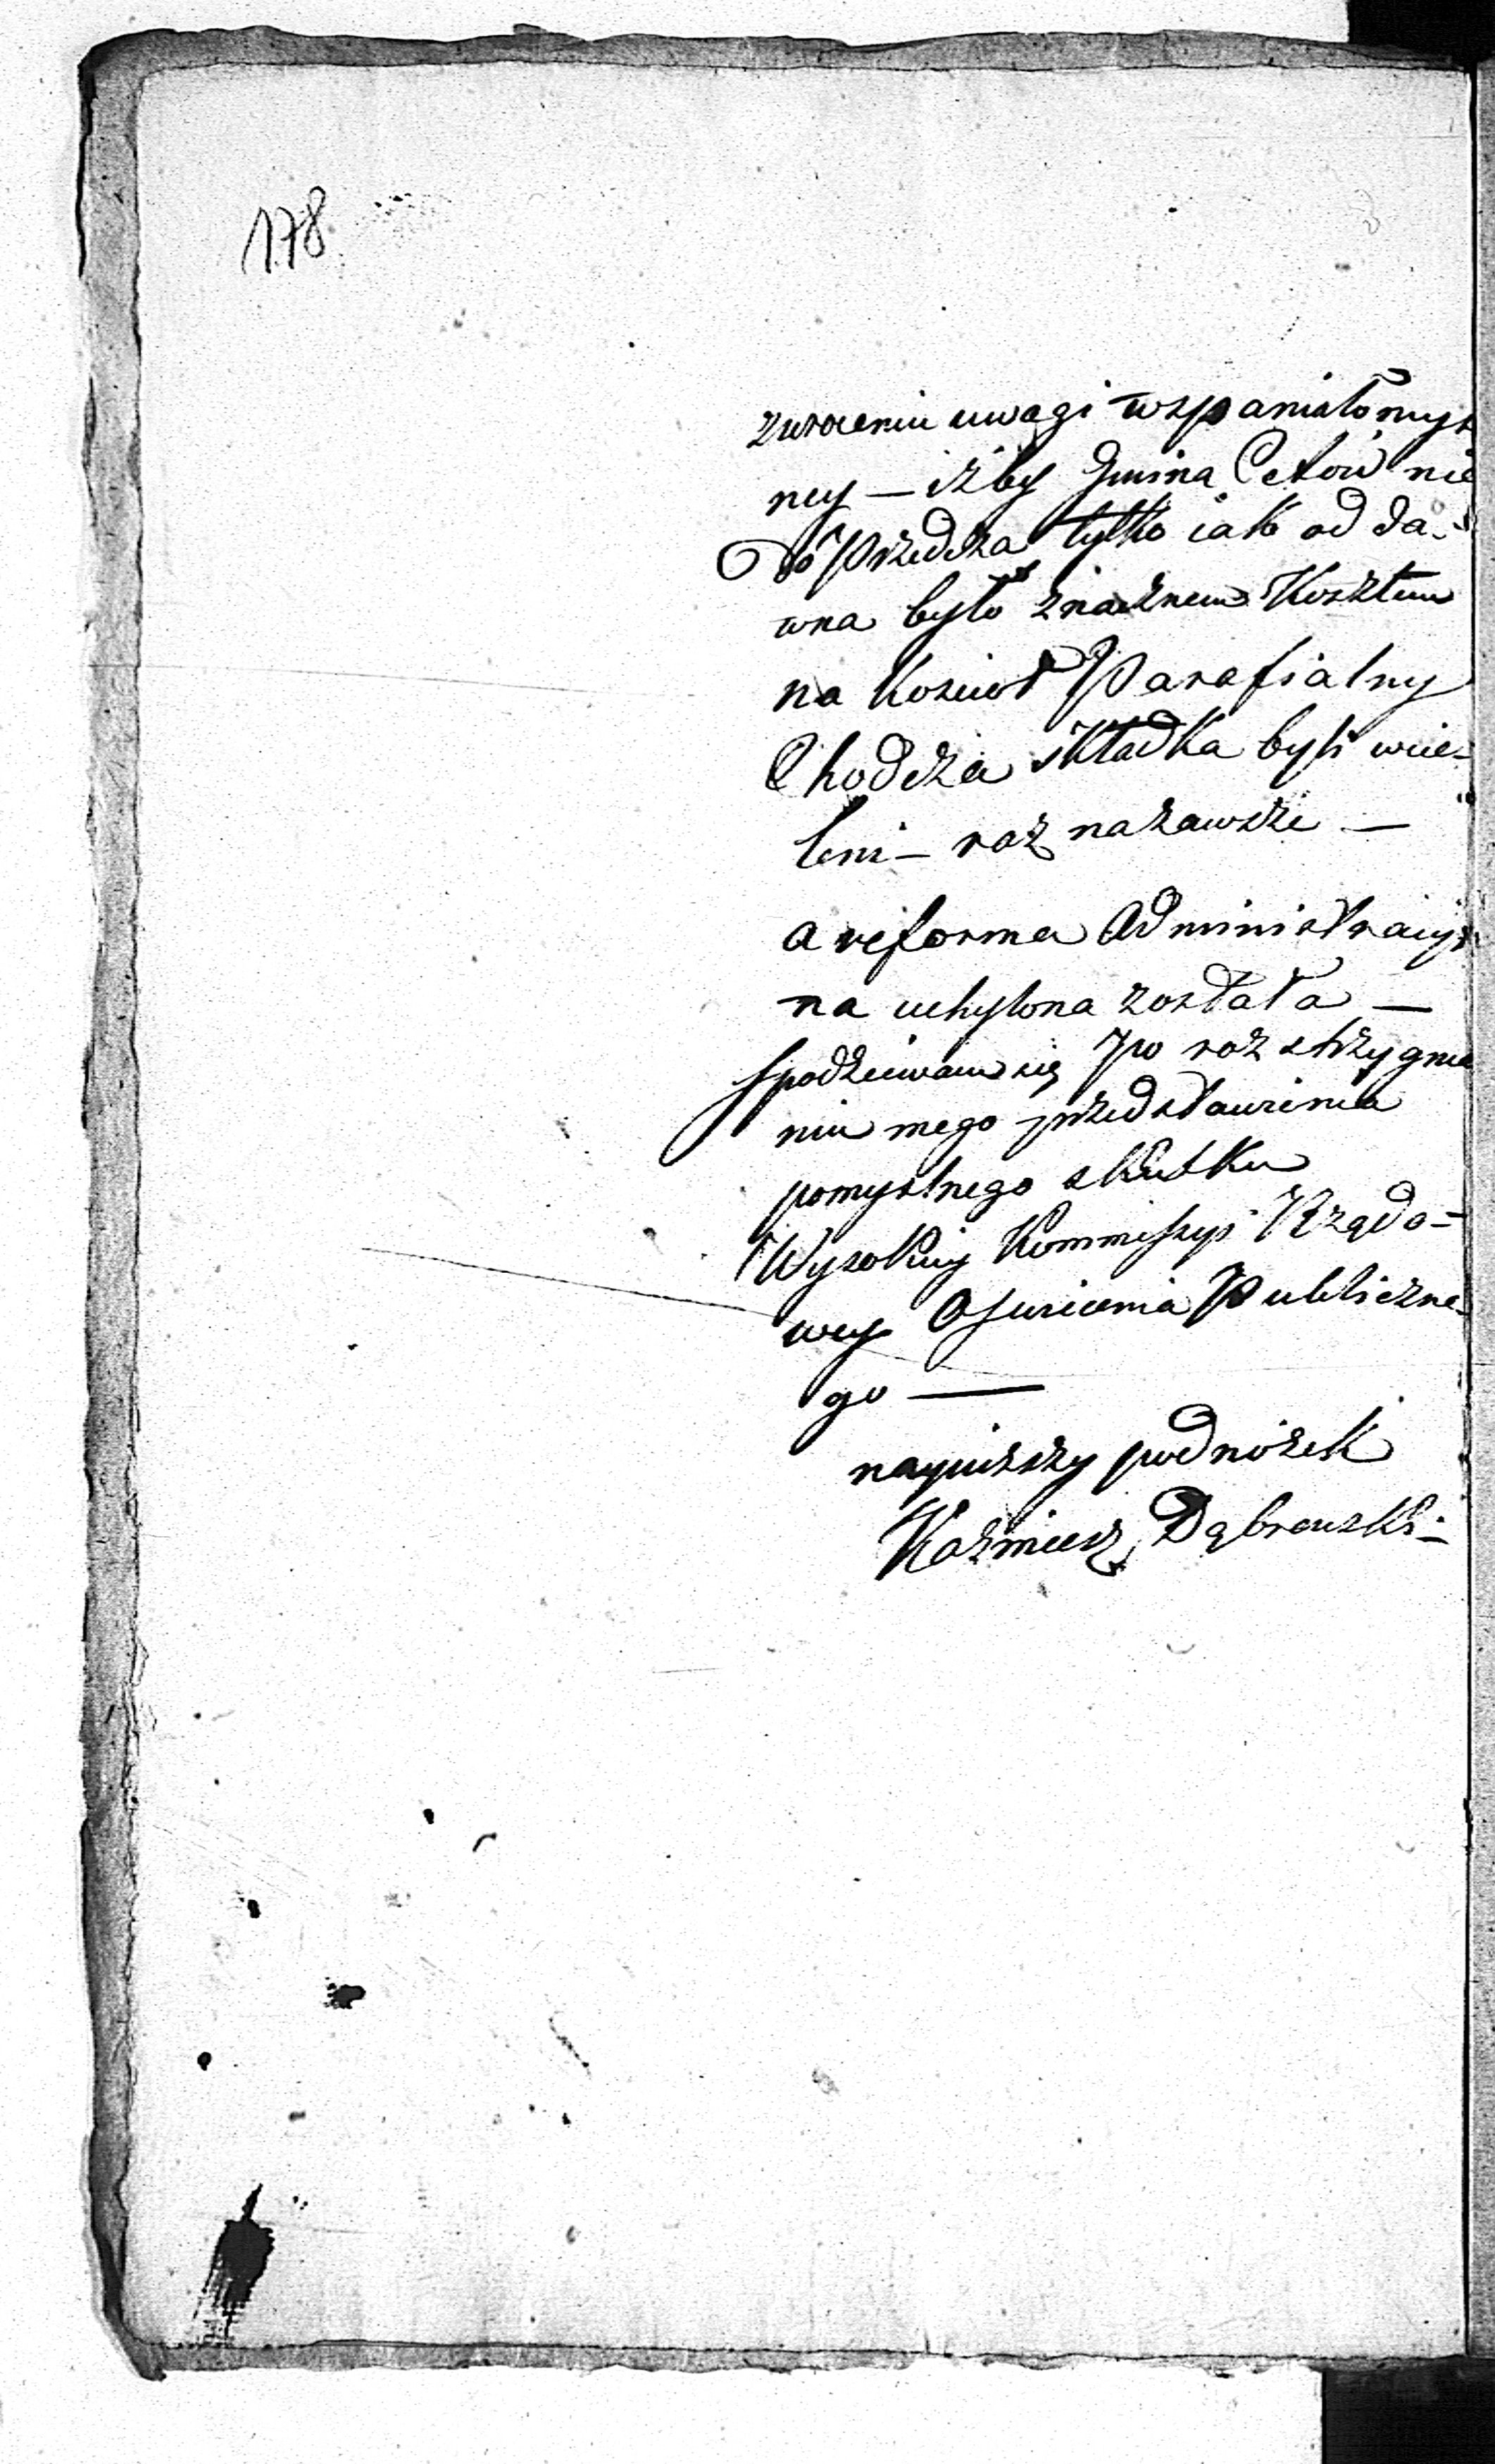 178
zwroceniu uwagi wspaniałomyś
ney — iżby Gmina Cetow nie
do Przedcza tylko iak od da-
wna było znacznem Kosztem
na Kosciół Parafialny
Chodcza składka byli wcie-
leni — raz nazawsze —
a reforma Administracyi
na uchylona została —
spodziewam się po rozstrzygnie
niu mego przedstawienia
pomyslnego skutku
Wysokiey Kommissyi Rządo=
wey Oswiecenia Publiczne-
go —
nayniższy podnóżek
Kazmierz Dąbrowski —